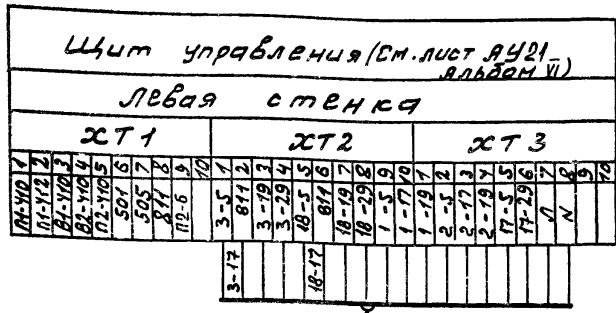 Щит управления (См. лист АУ21
Альбом VI)
Левая стенка
ХТ1 ХТ2 ХТ3
1 2 3 4 5 6 7 8 9 10 1 2 3 4 5 6 7 8 9 10 1 2 3 4 5 6 7 8 9 10
П1-У10 П1-У12 В1-У10 В2-У10 П2-У10 501 505 811 П2-6 3-5 811 3-19 3-29 18-5 811 18-19 18-29 1-5 1-17 1-19 2-5 2-17 2-19 17-5 17-29 Л N
3-17 18-17